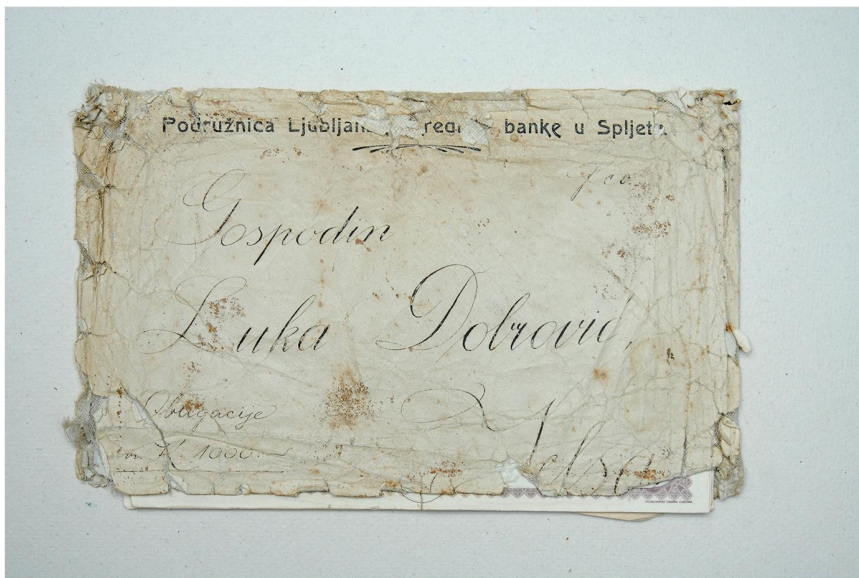 Podružnica banke u Spljetu
Gospodin
Luka Dobrović,
Obligacije
K 1000
Jelsa